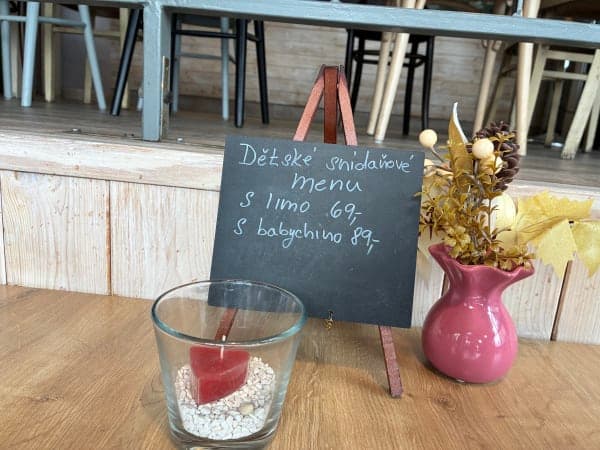 Dětské snídaňové
menu
s limo 69,-
s babychino 89,-